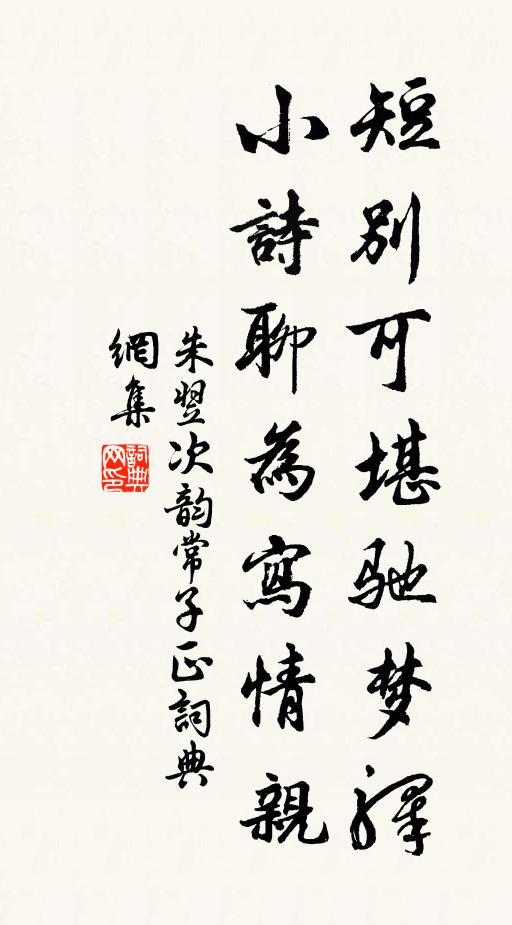 短别可堪驰梦驛
小詩聊為寫情親
朱翌次韵常子正詞典
網集
詞典网印